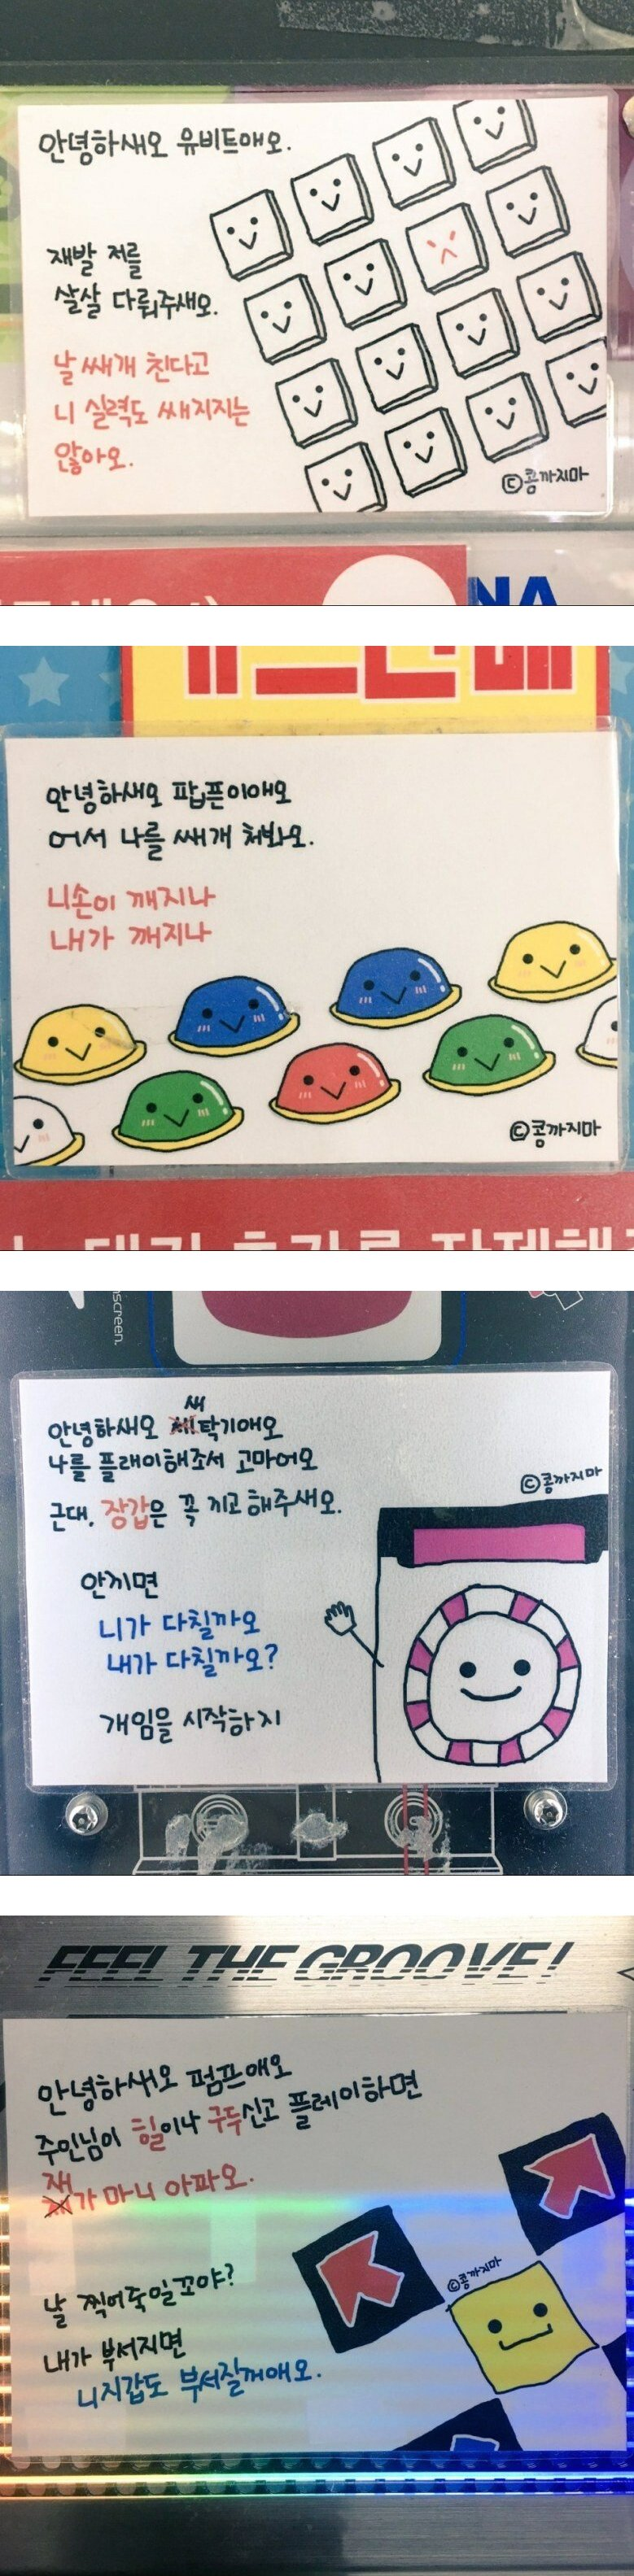 안녕하새오 유비트애오.
재발 저를
살살 다뤄주새오.
날 쌔개 친다고
니 실력도 쌔지지는
않아오.
©콩까지마
NA
안녕하새오 팝픈이애오
어서 나를 쌔개 처봐오.
니손이 깨지나
내가 깨지나
©콩까지마
screen.
새
안녕하새오 세탁기애오
나를 플래이해조서 고마어오
©콩까지마
근대, 장갑은 꼭 끼고 해주새오.
안끼면
니가 다칠까오
내가 다칠까오?
개임을 시작하지
FEEL THE GROOVE!
안녕하새오 펌프애오
주인님이 힐이나 구두신고 플레이하면
재
가 마니 아파오.
©콩까지마
날 찍어죽일꼬야?
내가 부서지면
니지갑도 부서질꺼애오.